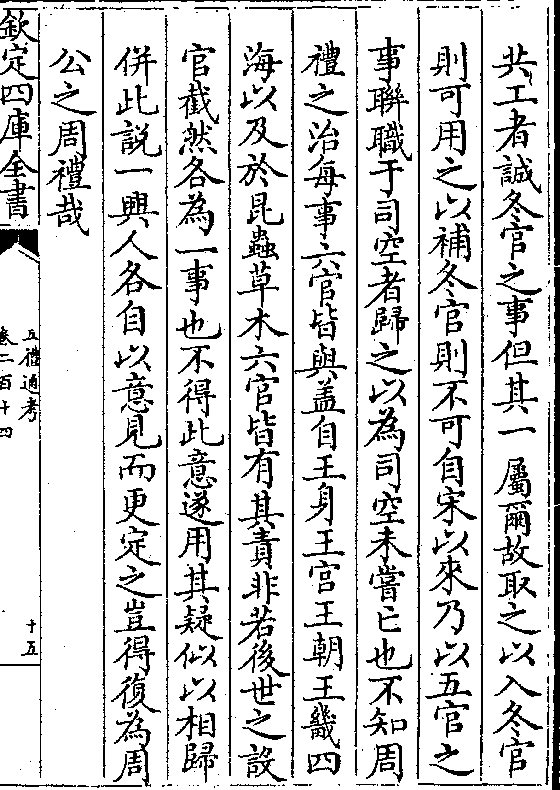 共工者誠冬官之事但其一屬爾故取之以入冬官
則可用之以補冬官則不可自宋以來乃以五官之
事聯職于司空者歸之以為司空未嘗亡也不知周
禮之治每事六官皆與蓋自王身王宮王朝王畿四
海以及於昆蟲草木六官皆有其責非若後世之設
官截然各為一事也不得此意遂用其疑似以相歸
併此説一興人各自以意見而更定之豈得復為周
公之周禮哉
欽定四庫全書
五禮通考
卷二百十四
十五